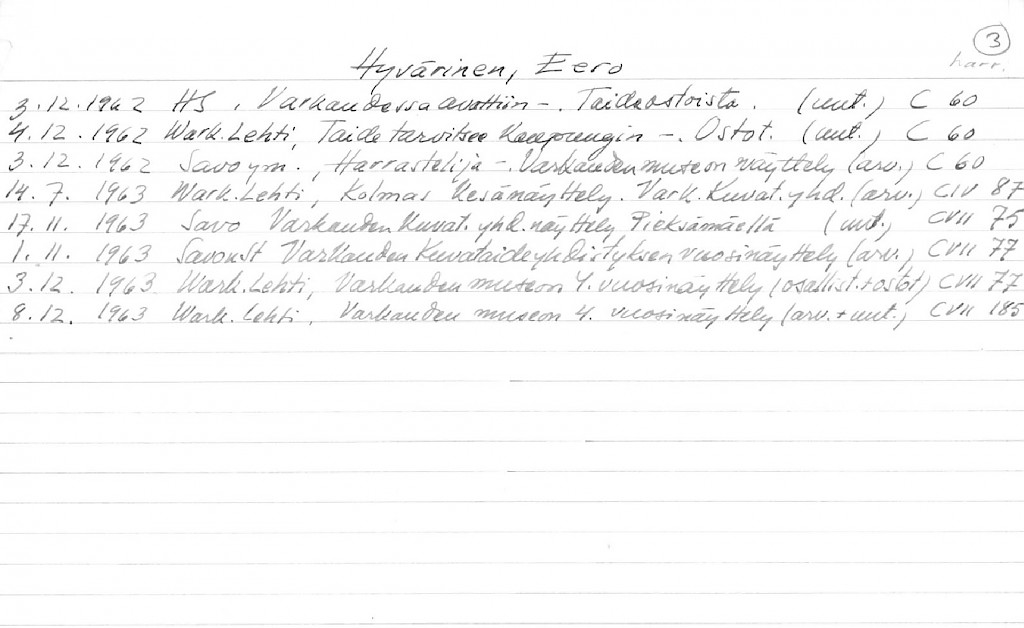 3
harr.
Hyvärinen, Eero
3.12.1962 HS. Varkaudessa avattiin -. Taideostoista. (uut.) C 60
4.12.1962 Wark.Lehti, Taide tarvitsee Kaupungin -. Ostot. (uut.) C 60
3.12.1962 Savo ym., Harrastelija -. Varkauden museon näyttely (arv.) C 60
14.7. 1963 Wark.Lehti, Kolmas Kesänäyttely. Vark. Kuvat.yhd. (arv.) CIV 87
17.11. 1963 Savo Varkauden Kuvat.yhd. näyttely Pieksämäellä (uut.) CVII 75
1.11. 1963 SavonSt Varkauden Kuvataideyhdistyksen vuosinäyttely (arv.) CVII 77
3.12. 1963 Wark.Lehti, Varkauden museon 4. vuosinäyttely (osallist.+ostot) CVII 77
8.12. 1963 Wark.Lehti, Varkauden museon 4. vuosinäyttely (arv.+uut.) CVII 185